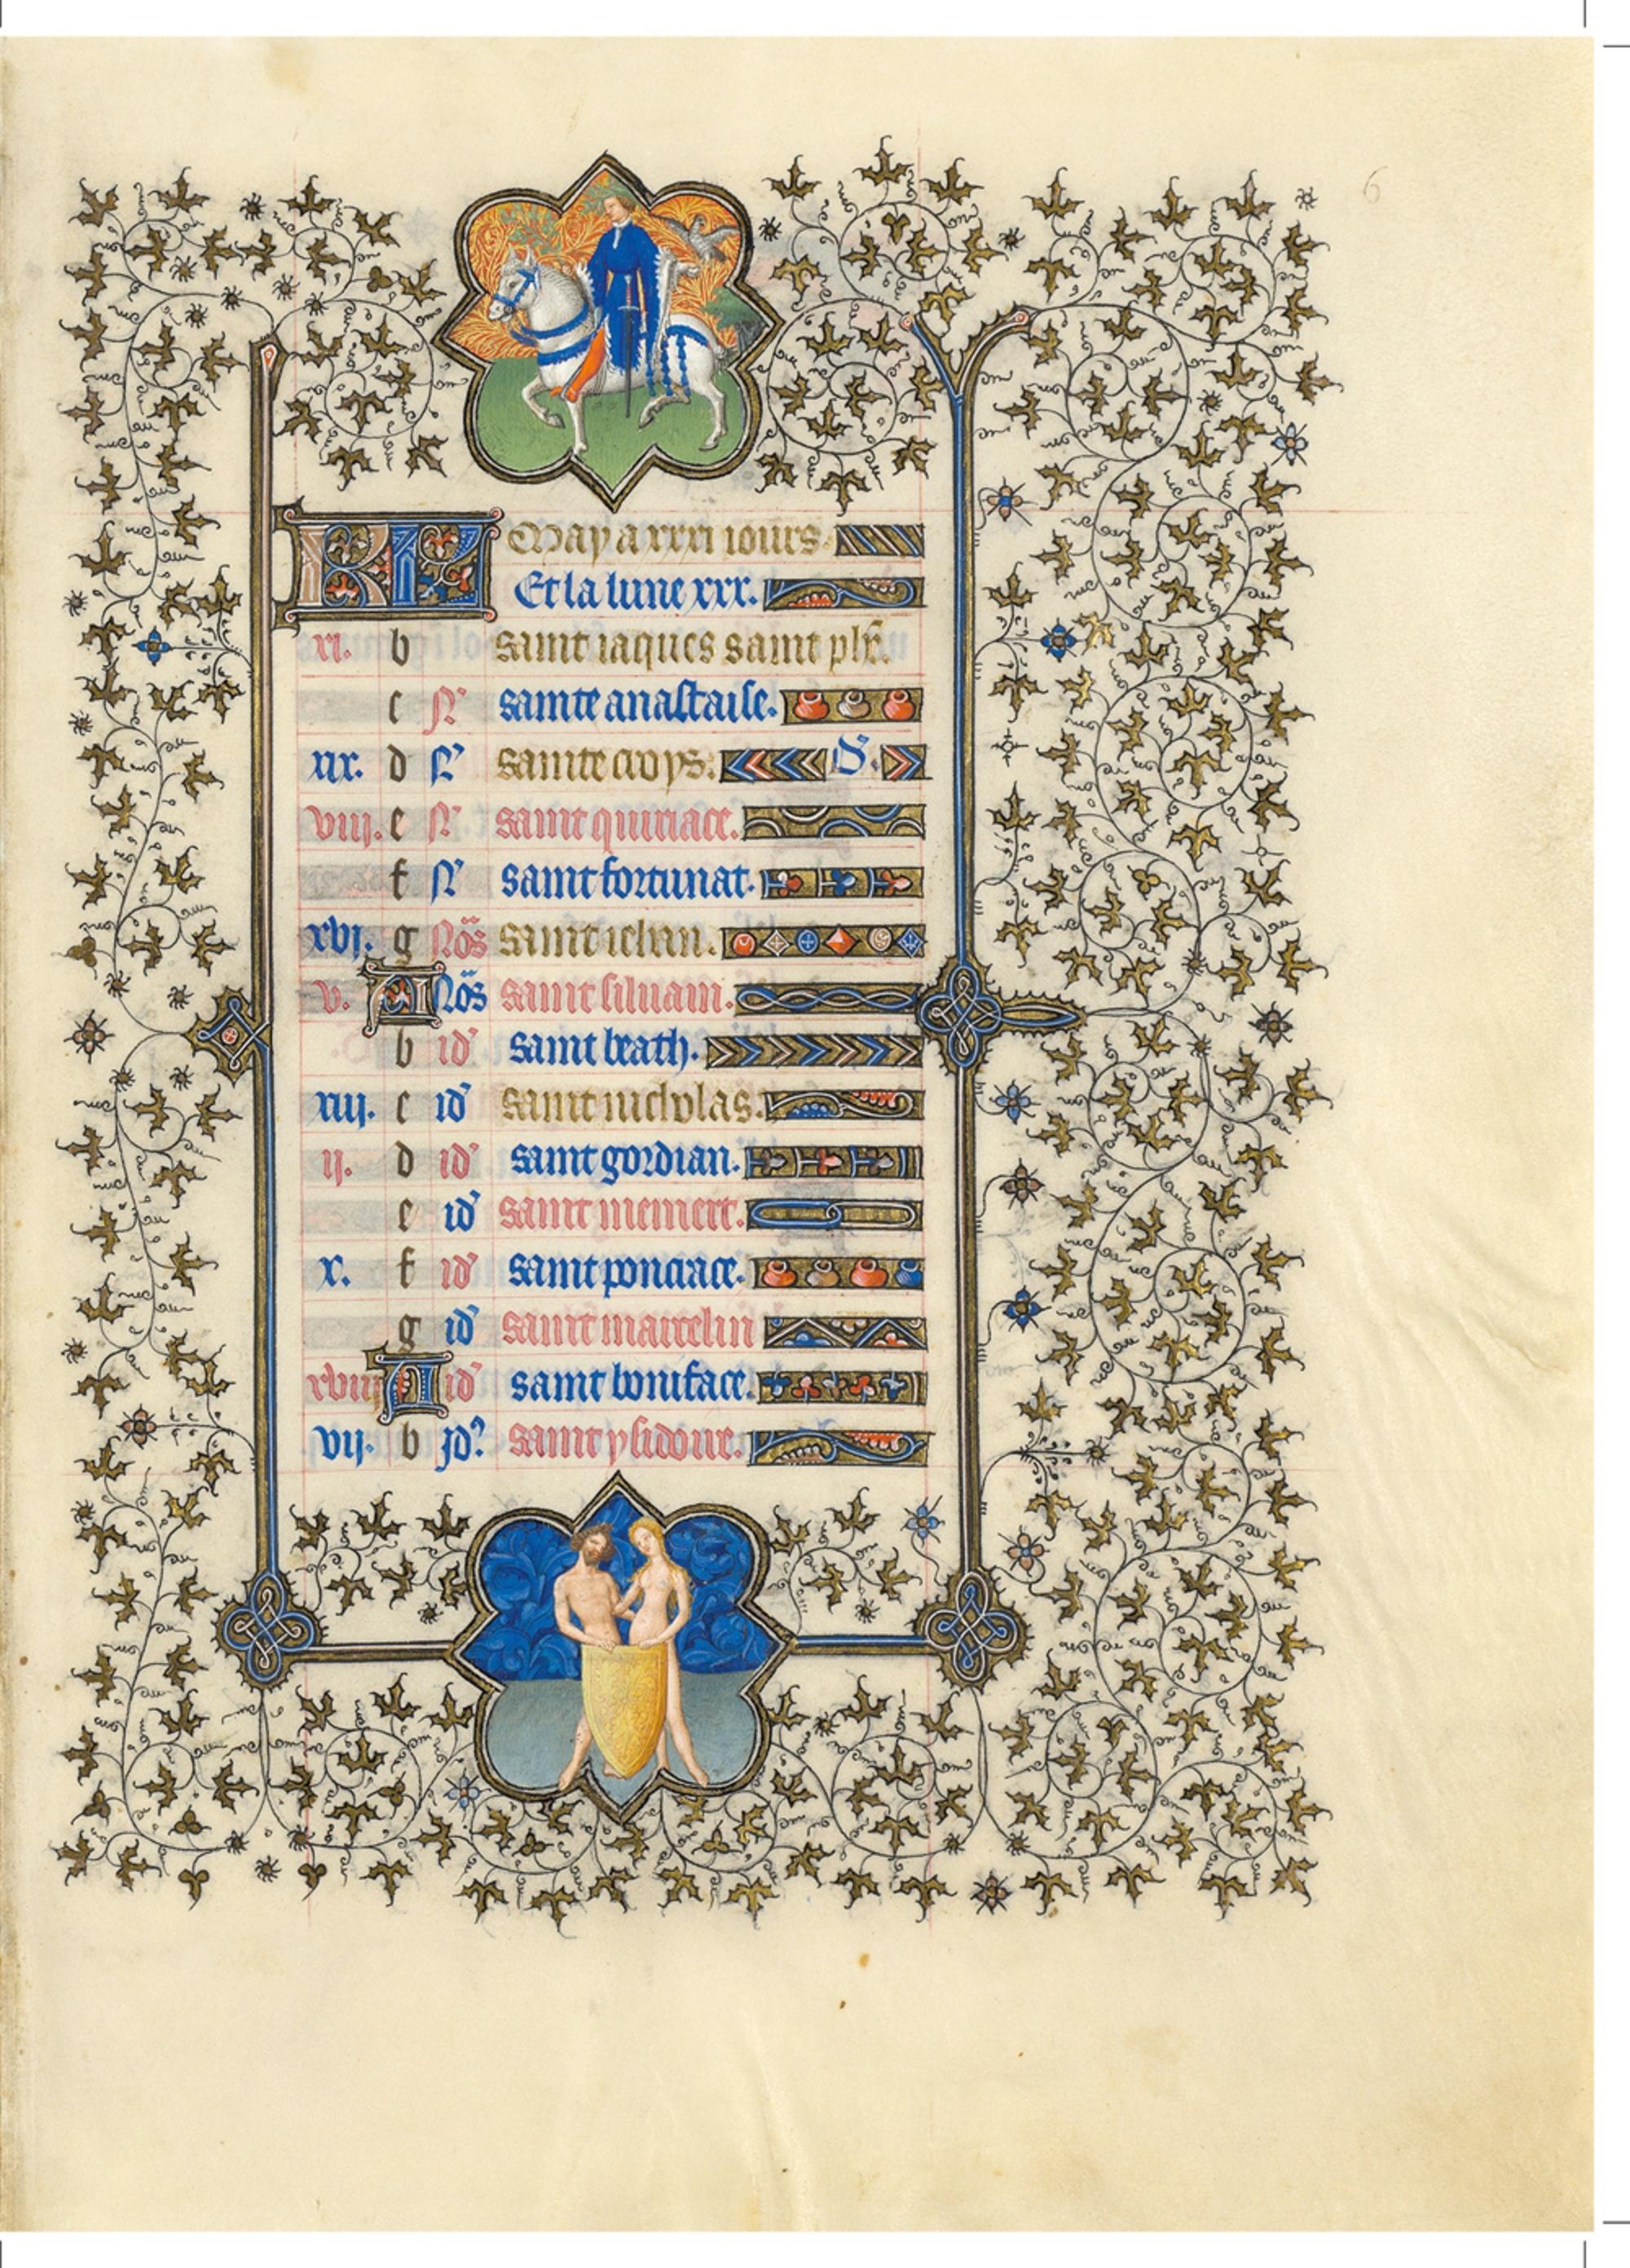 6
KL May a xxxi iours.
Et la lune xxx.
xi. b saint iaques saint ph̄e.
c N' sainte anastaise.
xix. d N' sainte croys. S.
viij. e N' saint quiriace.
f N' saint fortunat.
xvj. g Nōs saint iehan.
v. A Nōs saint siluain.
b id' saint beath.
xiij. c id' saint nicholas.
ij. d id' saint gordian.
e id' saint memert.
x. f id' saint poncrace.
g id' saint marcelin
xviij A id' saint boniface.
vij. b jd' saint ysidoire.